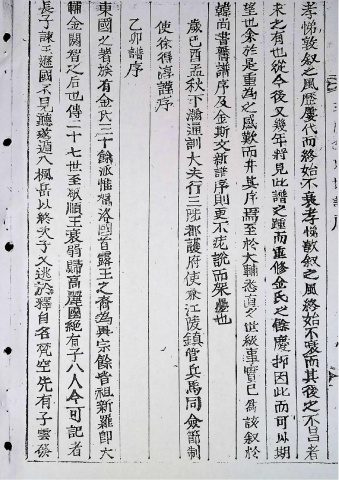 孝悌敦叙之風歷屢代而終始不衰孝悌敦叙之風終始不衰而其後之不昌者
未之有也從今後又幾年將見此譜之踵而重修金氏之餘慶抑因此而可以期
望也余於是重爲之感歎而幷其序焉至於大輔悉直之世級事實已爲該叙於
韓尙書舊譜序及金斯文新譜序則更不疣說而架疊也
歲己酉孟秋下澣通訓大夫行三陟都護府使兼江陵鎭管兵馬同僉節制
使徐得淳謹序
乙卯譜序
東國之著族有金氏三十餘派惟駕洛國首露王之裔爲異宗餘皆祖新羅即大
輔金閼智之后也傳二十七世至敬順王衰弱歸高麗國絶有子八人今可記者
長子諫王遜國不見聽遂遁入楓岳以終次子又逃於釋自名梵空先有子雲發